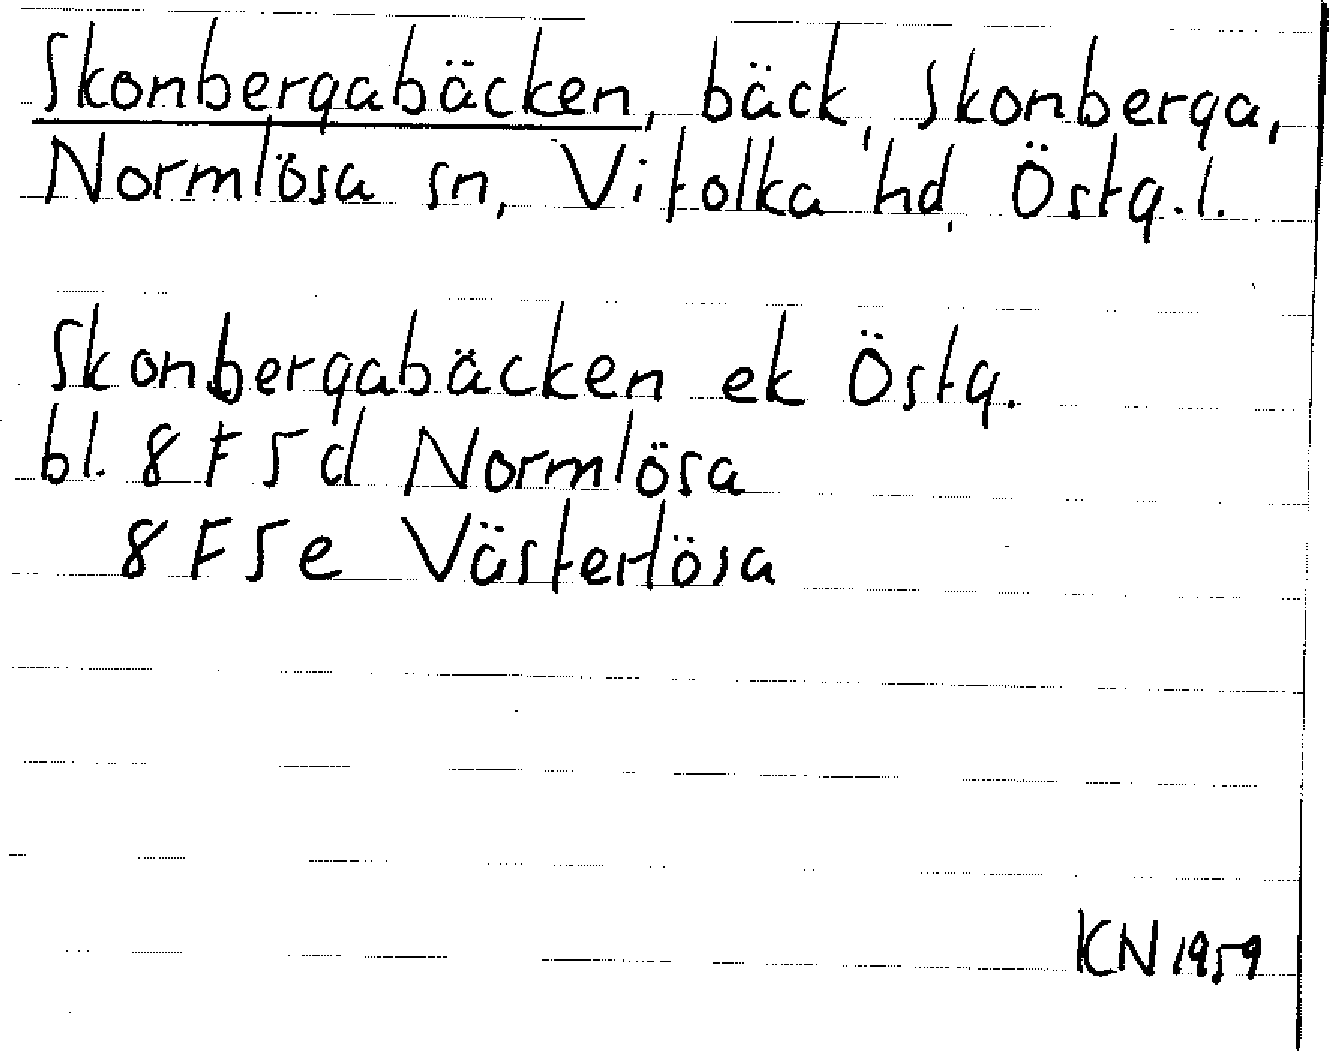 Skonbergabäcken, bäck, Skonberga,
Normlösa sn, Vifolka hd, Östg. l.
Skonbergabäcken ek Östg.
bl. 8F5d Normlösa
8F5e Västerlösa
KN 1959